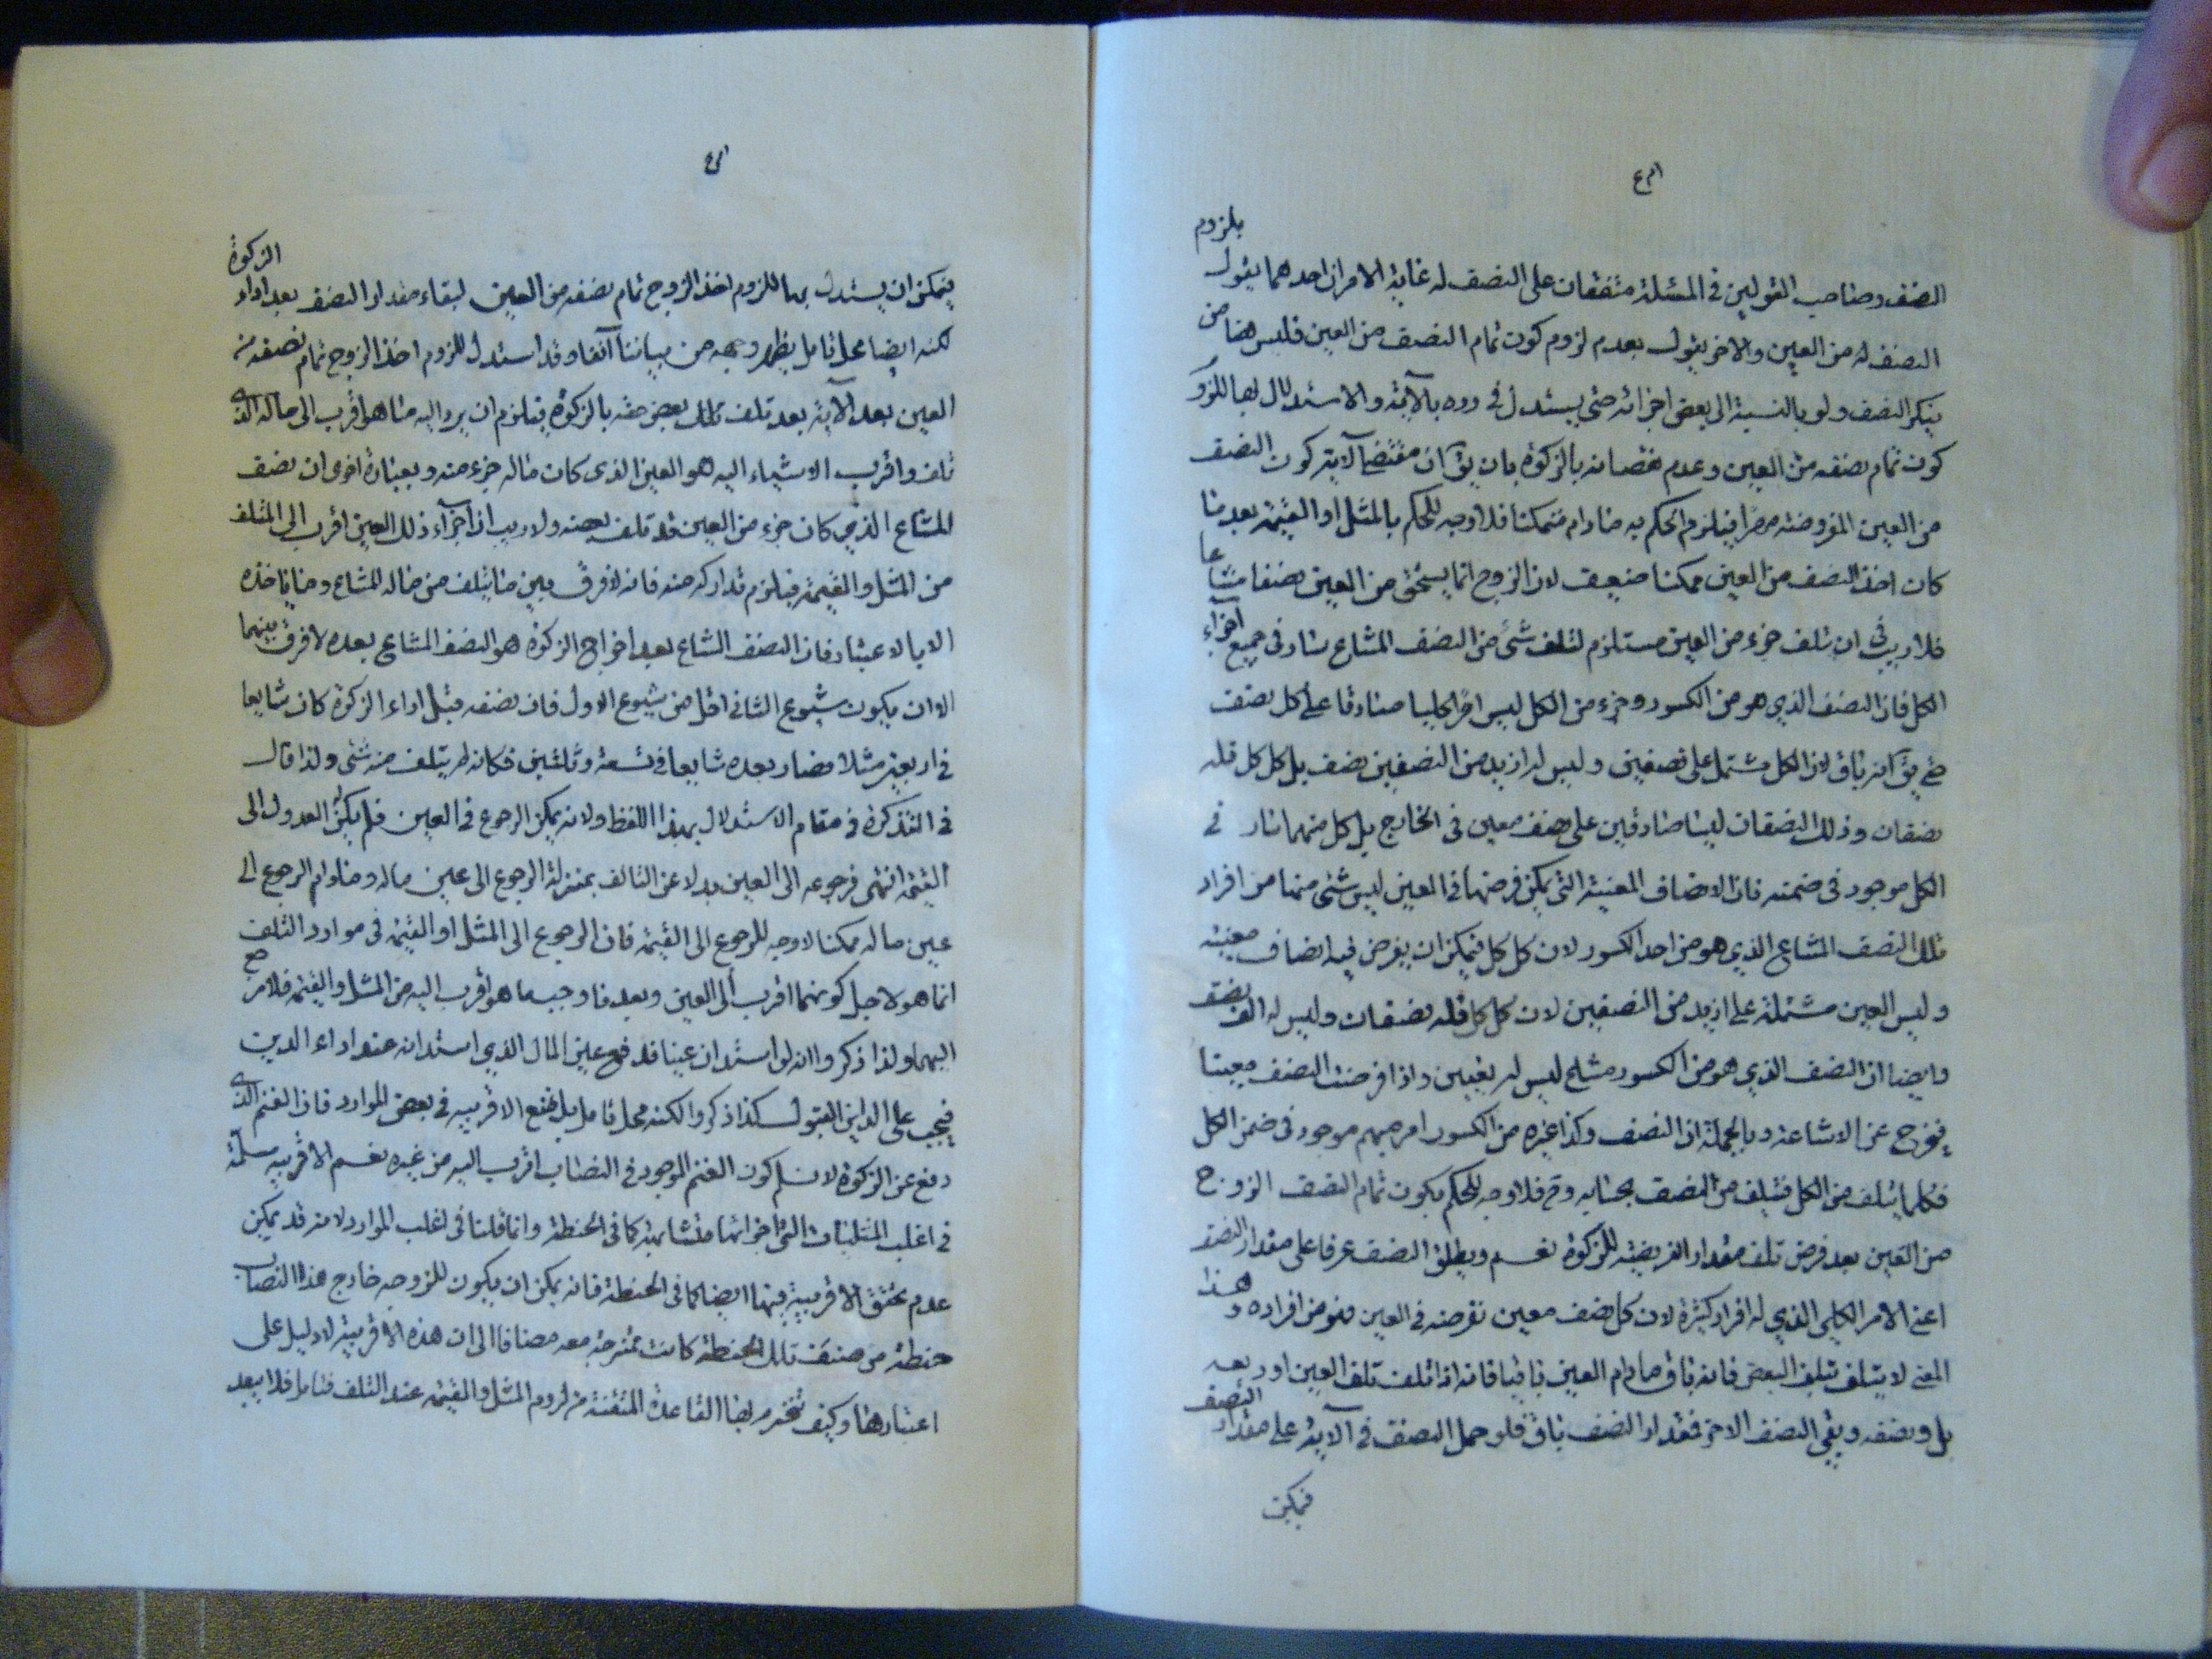 بلزوم
النصف وصاحب القولين فى المسئلة متفقان على النصف له غاية الامر ان احدهما يقول
النصف له من العين والاخر يقول بعدم لزوم كون تمام النصف من العين فليس هنا من
ينكر النصف ولو بالنسبة الى بعض اجزائه حتى يستدل فى رده بالآية والاستدلال بها للزو
كون تمام نصفه من العين وعدم نقصانه بالزكوة بان يق ان مقتضى الآية كون النصف
من العين المفروضة مهرا فيلزم الحكم به مادام متمكنا فلا وجه للحكم بالمثل او القيمة بعد ما
كان اخذ النصف من العين ممكنا ضعيف لان الزوج انما يستحق من العين نصفا مشاعا
فلا ريب فى ان تلف جزء من العين مستلزم لتلف شئ من النصف المشاع سار فى جميع اجزاء
الكل فان النصف الذى هو من الكسور وجزء من الكل ليس امرا كليا صادقا على كل نصف
حتى يق انه باق لان الكل مشتمل على نصفين وليس له ازيد من النصفين نصف بل كل كل فله
نصفان وذلك النصفان ليسا صادقين على نصف معين فى الخارج بل كل منهما سار فى
الكل موجود فى ضمنه فان الانصاف المعينة التى يمكن فرضها فى العين ليس شئ منها من افراد
تلك النصف المشاع الذى هو من احد الكسور لان كل كل فيمكن ان يفرض فيه انصاف معينة
وليس العين مشتملة على ازيد من النصفين لان كل كل فله نصفان وليس له الف نصف
وايضا ان النصف الذى هو من الكسور مثلا ليس له تعيين واذا فرضت النصف معينا
فيخرج عن الاشاعة وبالجملة ان النصف وكذا غيره من الكسور امر مبهم موجود فى ضمن الكل
فكلما يتلف من الكل فيتلف من النصف بحسابه وح فلا وجه للحكم بكون تمام النصف الزوج
من العين بعد فرض تلف مقدار الفريضة للزكوة نعم ويطلق النصف عرفا على مقدار النصف
اعنى الامر الكلى الذى له افراد كثيرة لان كل نصف معين نفرضه فى العين فهو من افراده وهذا
المعنى لا يتلف بتلف البعض فانه باق مادام العين باقيا فانه اذا تلف تلف العين او ربعه
بل ونصفه وبقى النصف الاخر فمقدار النصف باق فلو حمل النصف فى الآية على مقدار النصف
فيمكن
الزكوة
فيمكن ان يستدل بها للزوم اخذ الزوج تمام نصفه من العين لبقاء مقدار النصف بعد اداء
لكنه ايضا محل تامل يظهر وجهه من بياننا آنفا وقد استدل للزوم اخذ الزوج تمام نصفه من
العين بعد الآية بعد تلف تلك بعض حقه بالزكوة فيلزم ان يرد اليه ما هو اقرب الى ماله الذى
تلف واقرب الاشياء اليه هو العين الذى كان ماله جزء منه وبعبارة اخرى ان نصف
المشاع الذى كان جزء من العين قد تلف بعضه ولا ريب ان اجزآء ذلك العين اقرب الى المتلف
من المثل والقيمة فيلزم تداركه منه فانه لا فرق بين ما يتلف من ماله المشاع وما ياخذه
الا بالاعتبار فان النصف المشاع بعد اخراج الزكوة هو النصف المشاع بعده لا فرق بينهما
الا ان يكون شيوع الثانى اقل من شيوع الاول فان نصفه قبل اداء الزكوة كان شايعا
فى اربعين مثلا فصار بعده شايعا فى تسعة وثلثين فكانه لم يتلف منه شئ ولذا قال
فى التذكرة فى مقام الاستدلال بهذا اللفظ ولانه يمكن الرجوع فى العين فلم يكن له العدول الى
القيمة انتهى فرجوعه الى العين بدلا عن التالف بمنزلة الرجوع الى عين ماله ومادام الرجوع الى
عين ماله ممكنا لا وجه للرجوع الى القيمة فان الرجوع الى المثل او القيمة فى موارد التلف
انما هو لاجل كونهما اقرب الى العين وبعد ما وجب ما هو اقرب اليه من المثل والقيمة فلا مرجع
اليهما ولذا ذكروا انه لو استدان عينا فدفع عين المال الذى استدانه عند اداء الدين
فيجب على الداين القبول كذا ذكروا لكنه محل تامل بل بمنع الاقربية فى بعض الموارد فان الغنم الذى
دفع عن الزكوة لا نسلم كون الغنم الموجود فى النصاب اقرب اليه من غيره نعم الاقربية مسلمة
فى اغلب المثليات التى اجزائها متشابهة كما فى الحنطة وانما قلنا فى اغلب الموارد لانه قد يمكن
عدم تحقق الاقربية فيها ايضا كما فى الحنطة فانه يمكن ان يكون للزوجه خارج هذا النصاب
حنطة من صنف تلك الحنطة كانت ممتزجة معه مضافا الى ان هذه الاقربية لا دليل على
اعتبارها وكيف تنخرم بها القاعدة المتقنة من لزوم المثل والقيمة عند التلف فتامل فلا يبعد